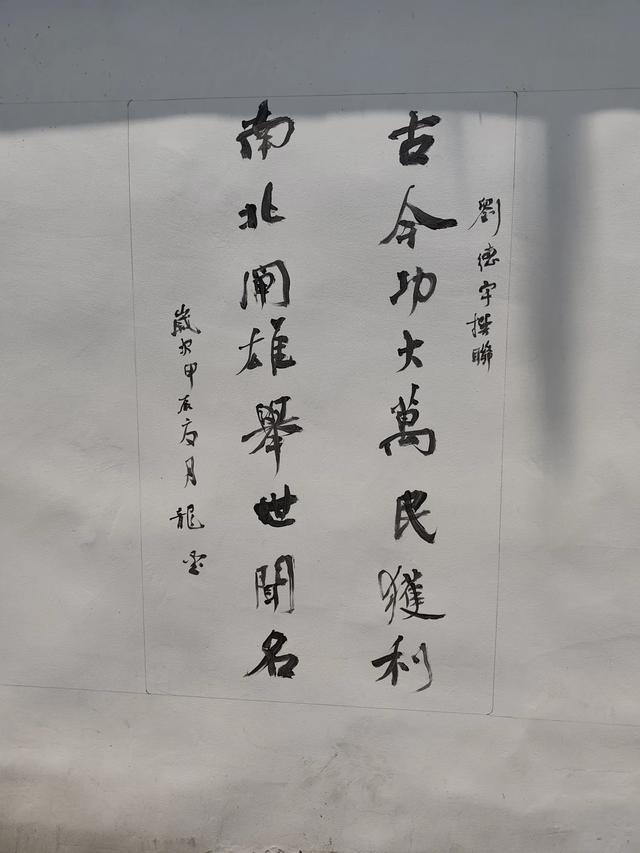 劉德宇撰聯
古今功大萬民獲利
南北閘雄舉世聞名
歲次甲辰月龍